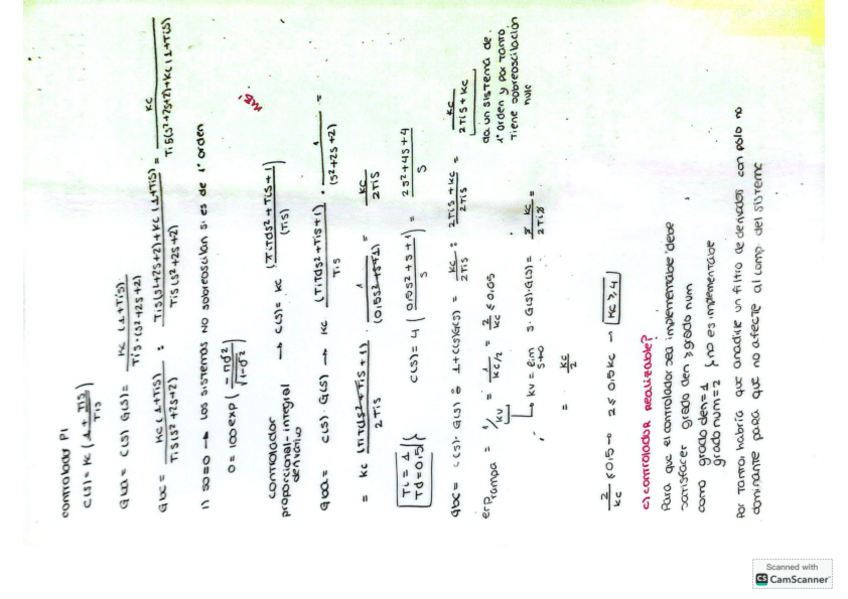 controlador PI
C(s) = Kc (1 + Tis / Tis)
Gba = C(s) G(s) = Kc (1+Tis) / Tis · (s²+2s+2)
Gbc = Kc (1+Tis) / Tis (s²+2s+2) : Tis(s²+2s+2)+Kc(1+Tis) / Tis (s²+2s+2) = Kc / Tis(s²+2s+2)+Kc(1+Tis)
1) SO=0 → Los sistemas no sobreoscilan si es de 1º orden
0 = 100 exp (-πd² / √1-d²)
controlador
proporcional-integral → C(s) = Kc (TiTds² + Tis + 1) / (Tis)
derivativo
Gba = C(s) · G(s) → Kc (TiTds² + Tis + 1) / Tis · 1 / (s²+2s+2) =
= Kc (TiTds² + Tis + 1) / 2Tis · 1 / (0,5s²+s+1) = Kc / 2Tis
Ti = 1
Td = 0,5
C(s) = 4 (0,5s² + s + 1 / s) = 2s² + 4s + 4 / s
Gbc = C(s) · G(s) ÷ 1 + C(s)G(s) = Kc / 2Tis : 2Tis + Kc / 2Tis = Kc / 2Tis + Kc
da un sistema de
1º orden y por tanto
tiene sobreoscilación
nula
erp rampa = 1/Kv = 1 / Kc/2 = 2 / Kc ≤ 0,05
Kv = lim s→0 s · G(s)·G(s) = s Kc / 2Tis =
= Kc / 2
2 / Kc ≤ 0,5 → 2 ≤ 0,5 Kc → Kc ≥ 4
c) controlador realizable?
Para que el controlador sea implementable debe
satisfacer grado den ≥ grado num
como grado den = 1
grado num = 2 } no es implementable
Por tanto habría que añadirle un filtro de derivados con polo no
dominante para que no afecte al comp. del sistema
Scanned with
CS CamScanner